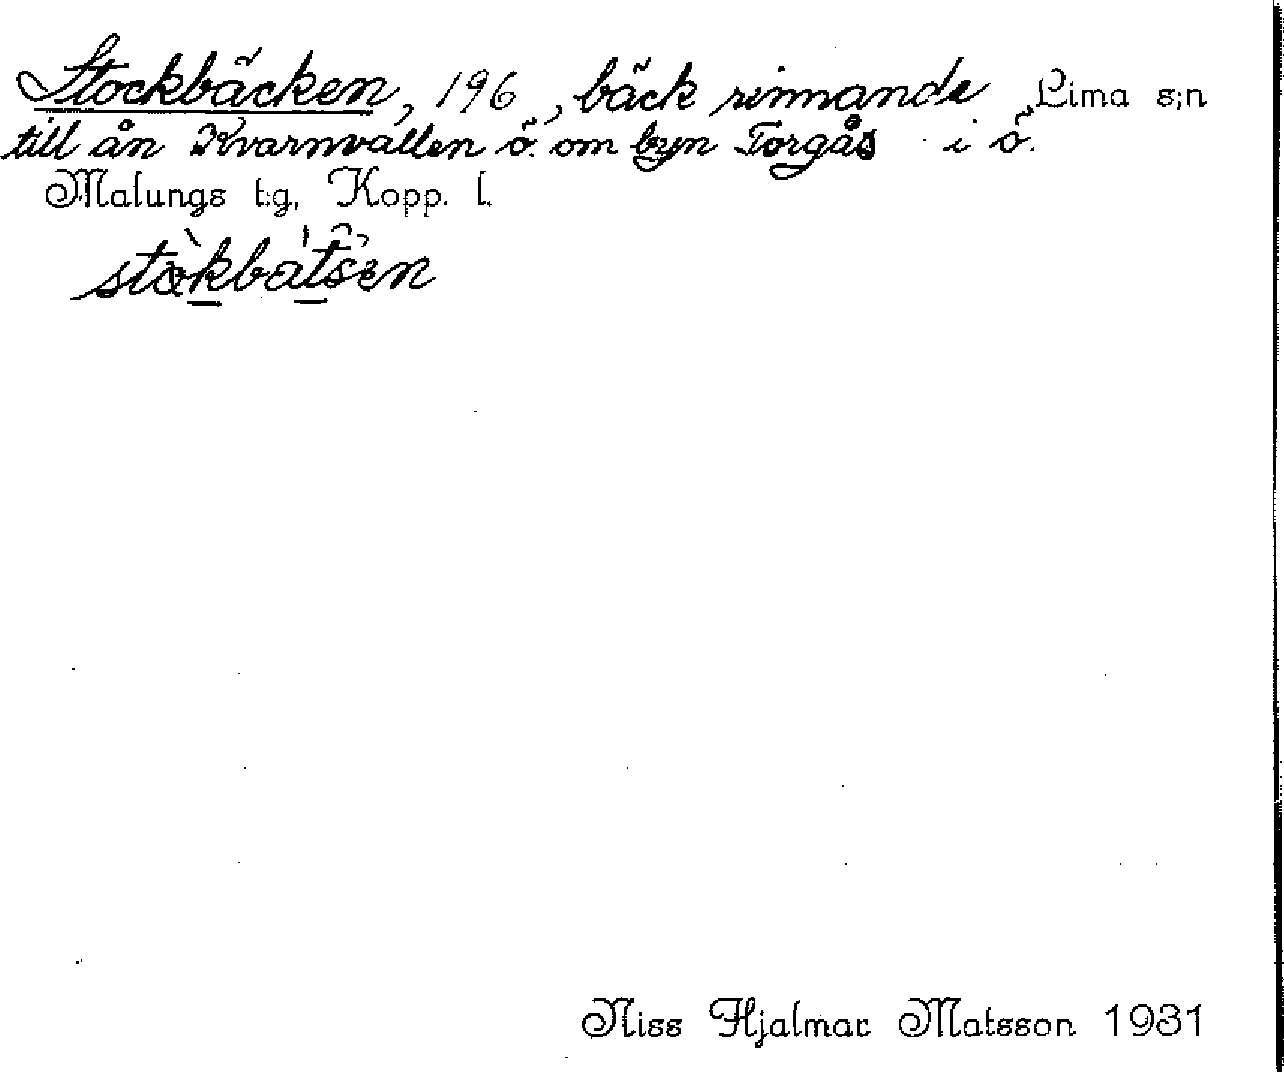 Stockbäcken, 196, bäck rinnande Lima s:n
till ån Kvarnvallen ö. om byn Torgås i ö.
Malungs t:g, Kopp. l.
Niss Hjalmar Matsson 1931